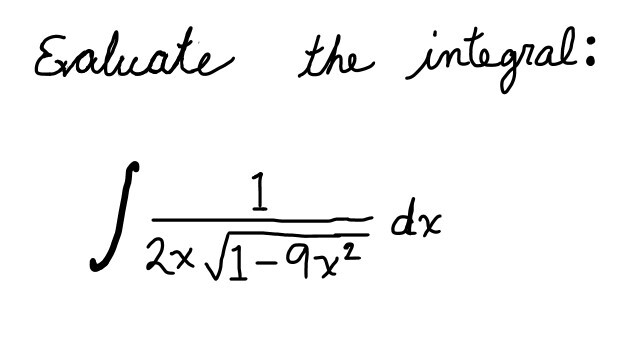 Evaluate the integral:
∫ 1/(2x√(1-9x²)) dx